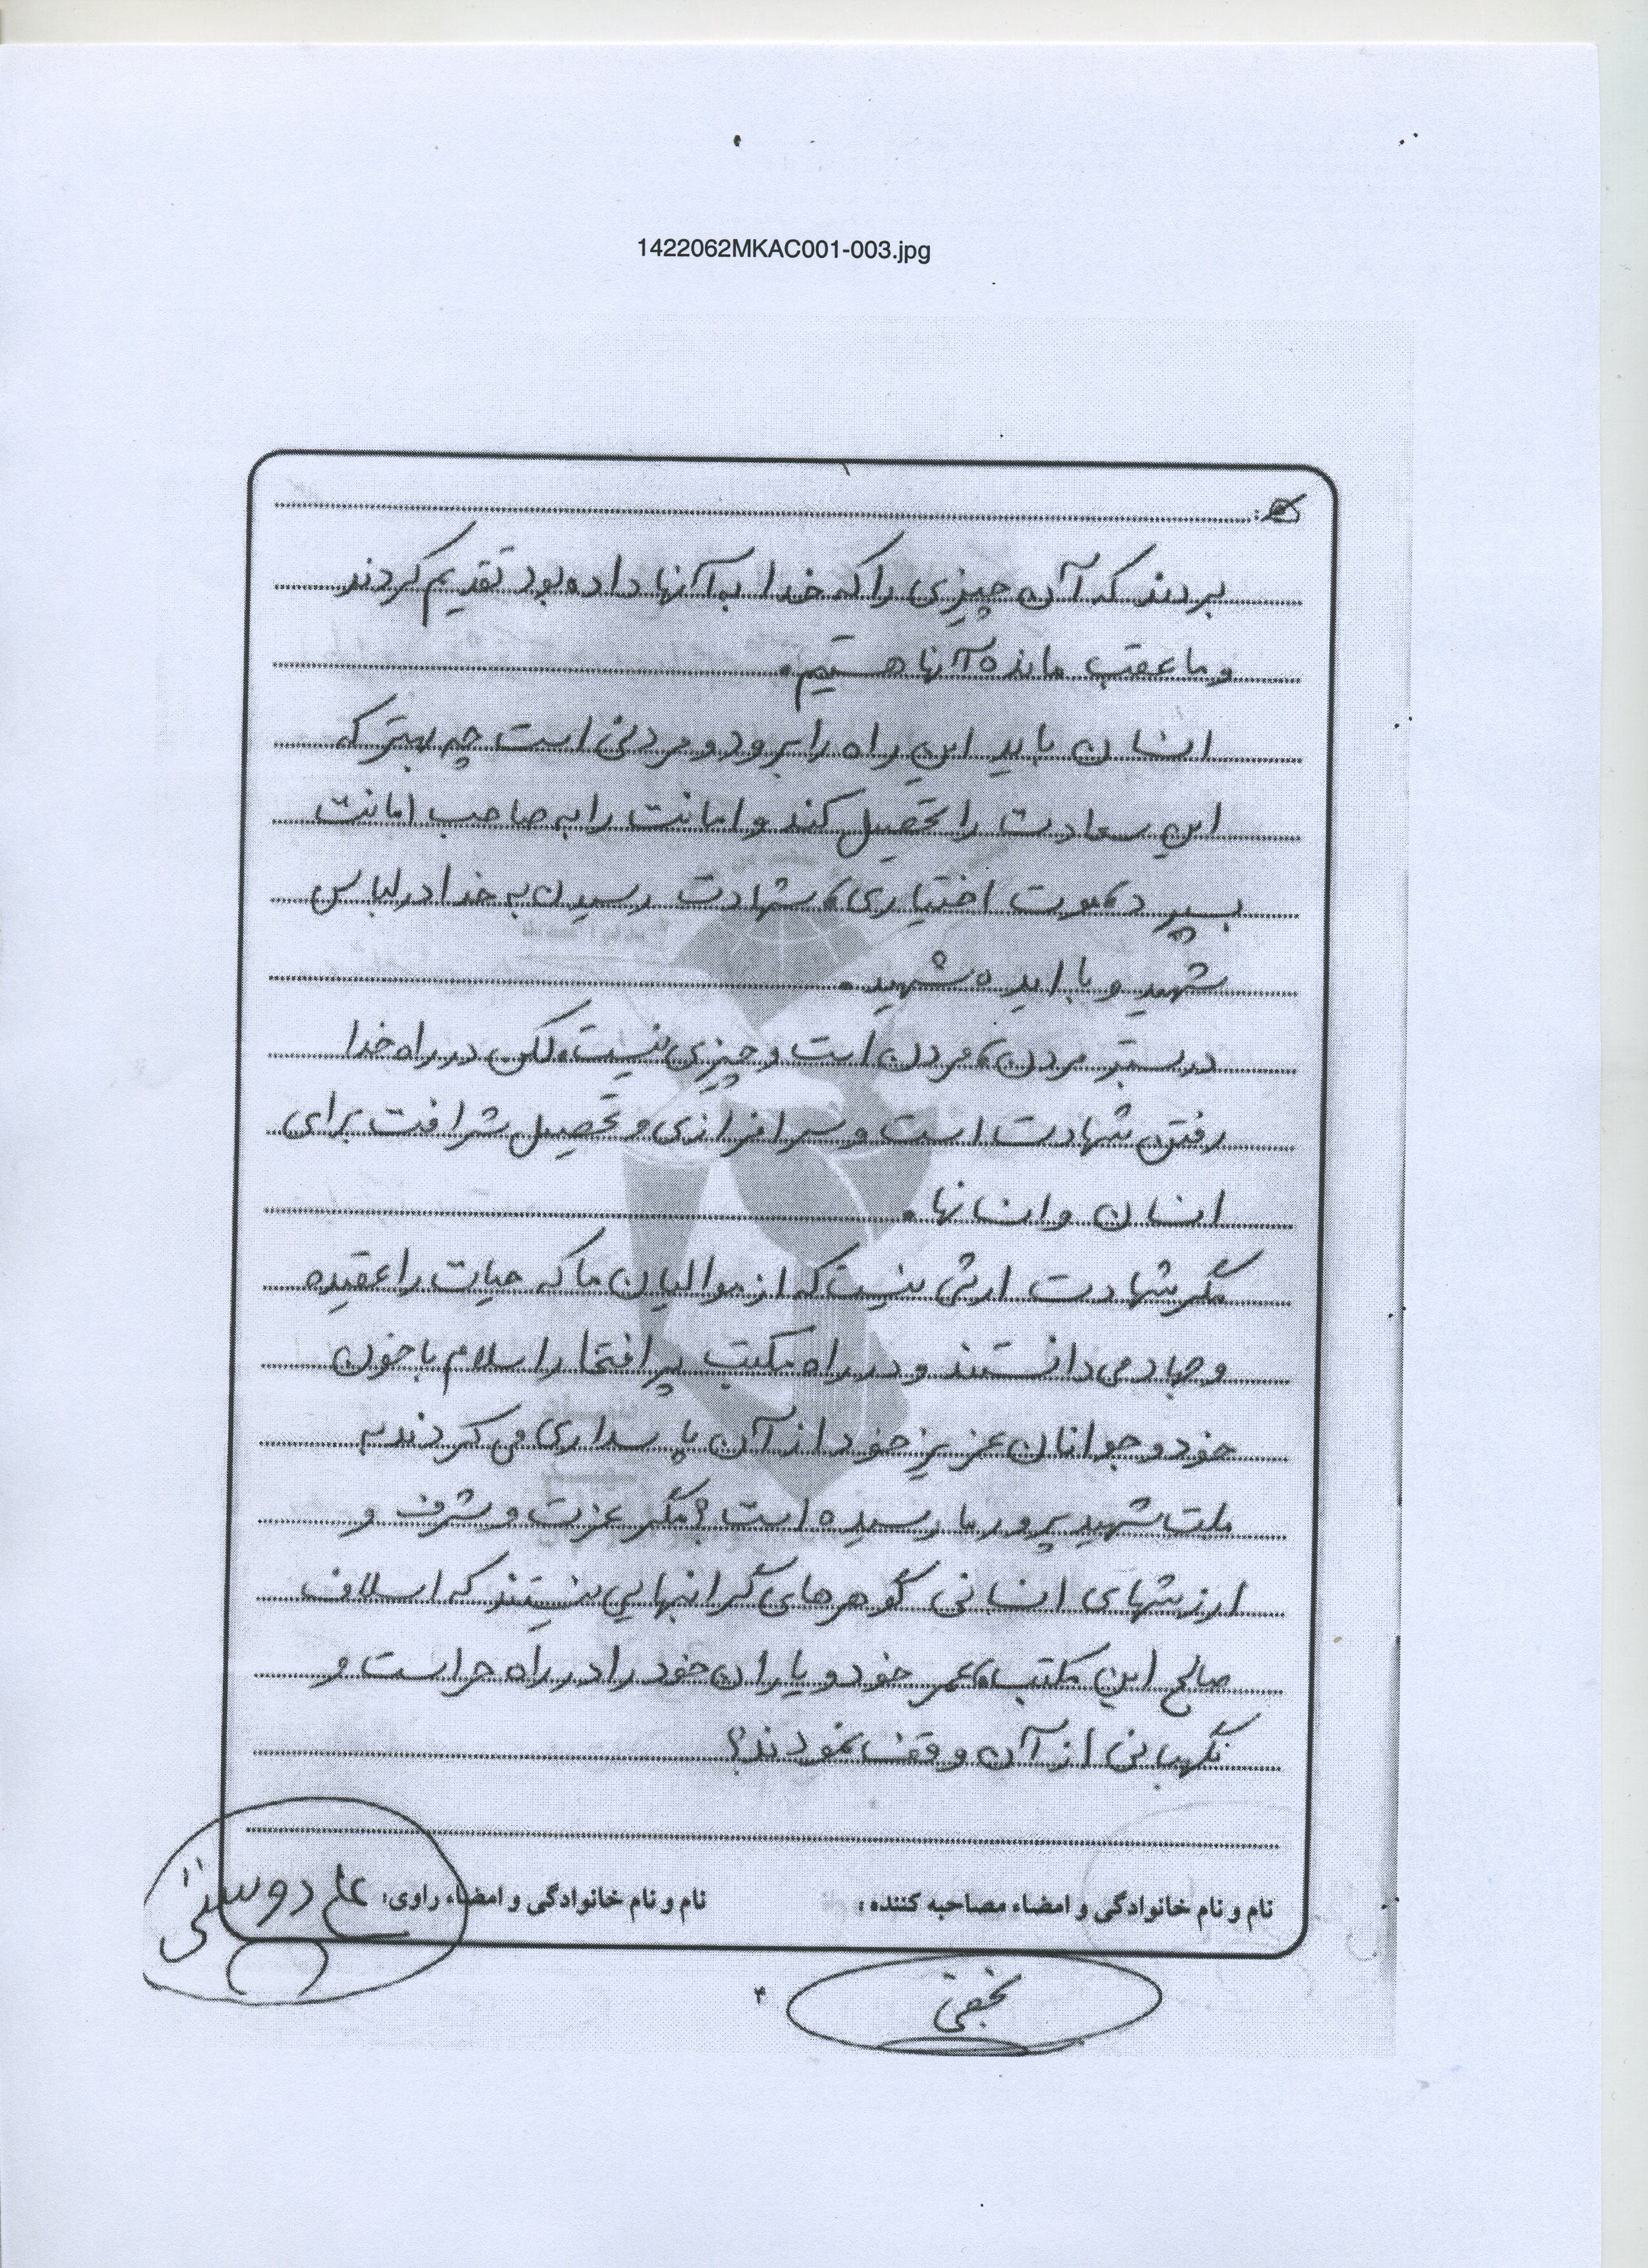 1422062MKAC001-003.jpg
بردند که آن چیزی را که خدا به آنها داده بود تقدیم کردند
و ما عقب مانده آنها هستیم.
انسان باید این راه را برود و مردنی است چه بهتر که
این سعادت را تحصیل کند و امانت را به صاحب امانت
بسپرد، موت اختیاری، شهادت رسیدن به خدا در لباس
شهید و با ایده شهید.
در بستر مردن، مردن است و چیزی نیست، لکن در راه خدا
رفتن شهادت است و سرافرازی و تحصیل شرافت برای
انسان و انسانها.
مگر شهادت ارثی نیست که از موالیان ما که حیات را عقیده
و جهاد می دانستند و در راه مکتب پر افتخار اسلام با خون
خود و جوانان عزیز خود از آن پاسداری می کردند به
ملت شهید پرور ما رسیده است؟ مگر عزت و شرف و
ارزشهای انسانی گوهرهای گرانبهایی نیستند که اسلاف
صالح این مکتب، عمر خود و یاران خود را در راه حراست و
نگهبانی از آن وقف نمودند؟
نام و نام خانوادگی و امضاء مصاحبه کننده: نام و نام خانوادگی و امضاء راوی: علی دوستی
نجفی